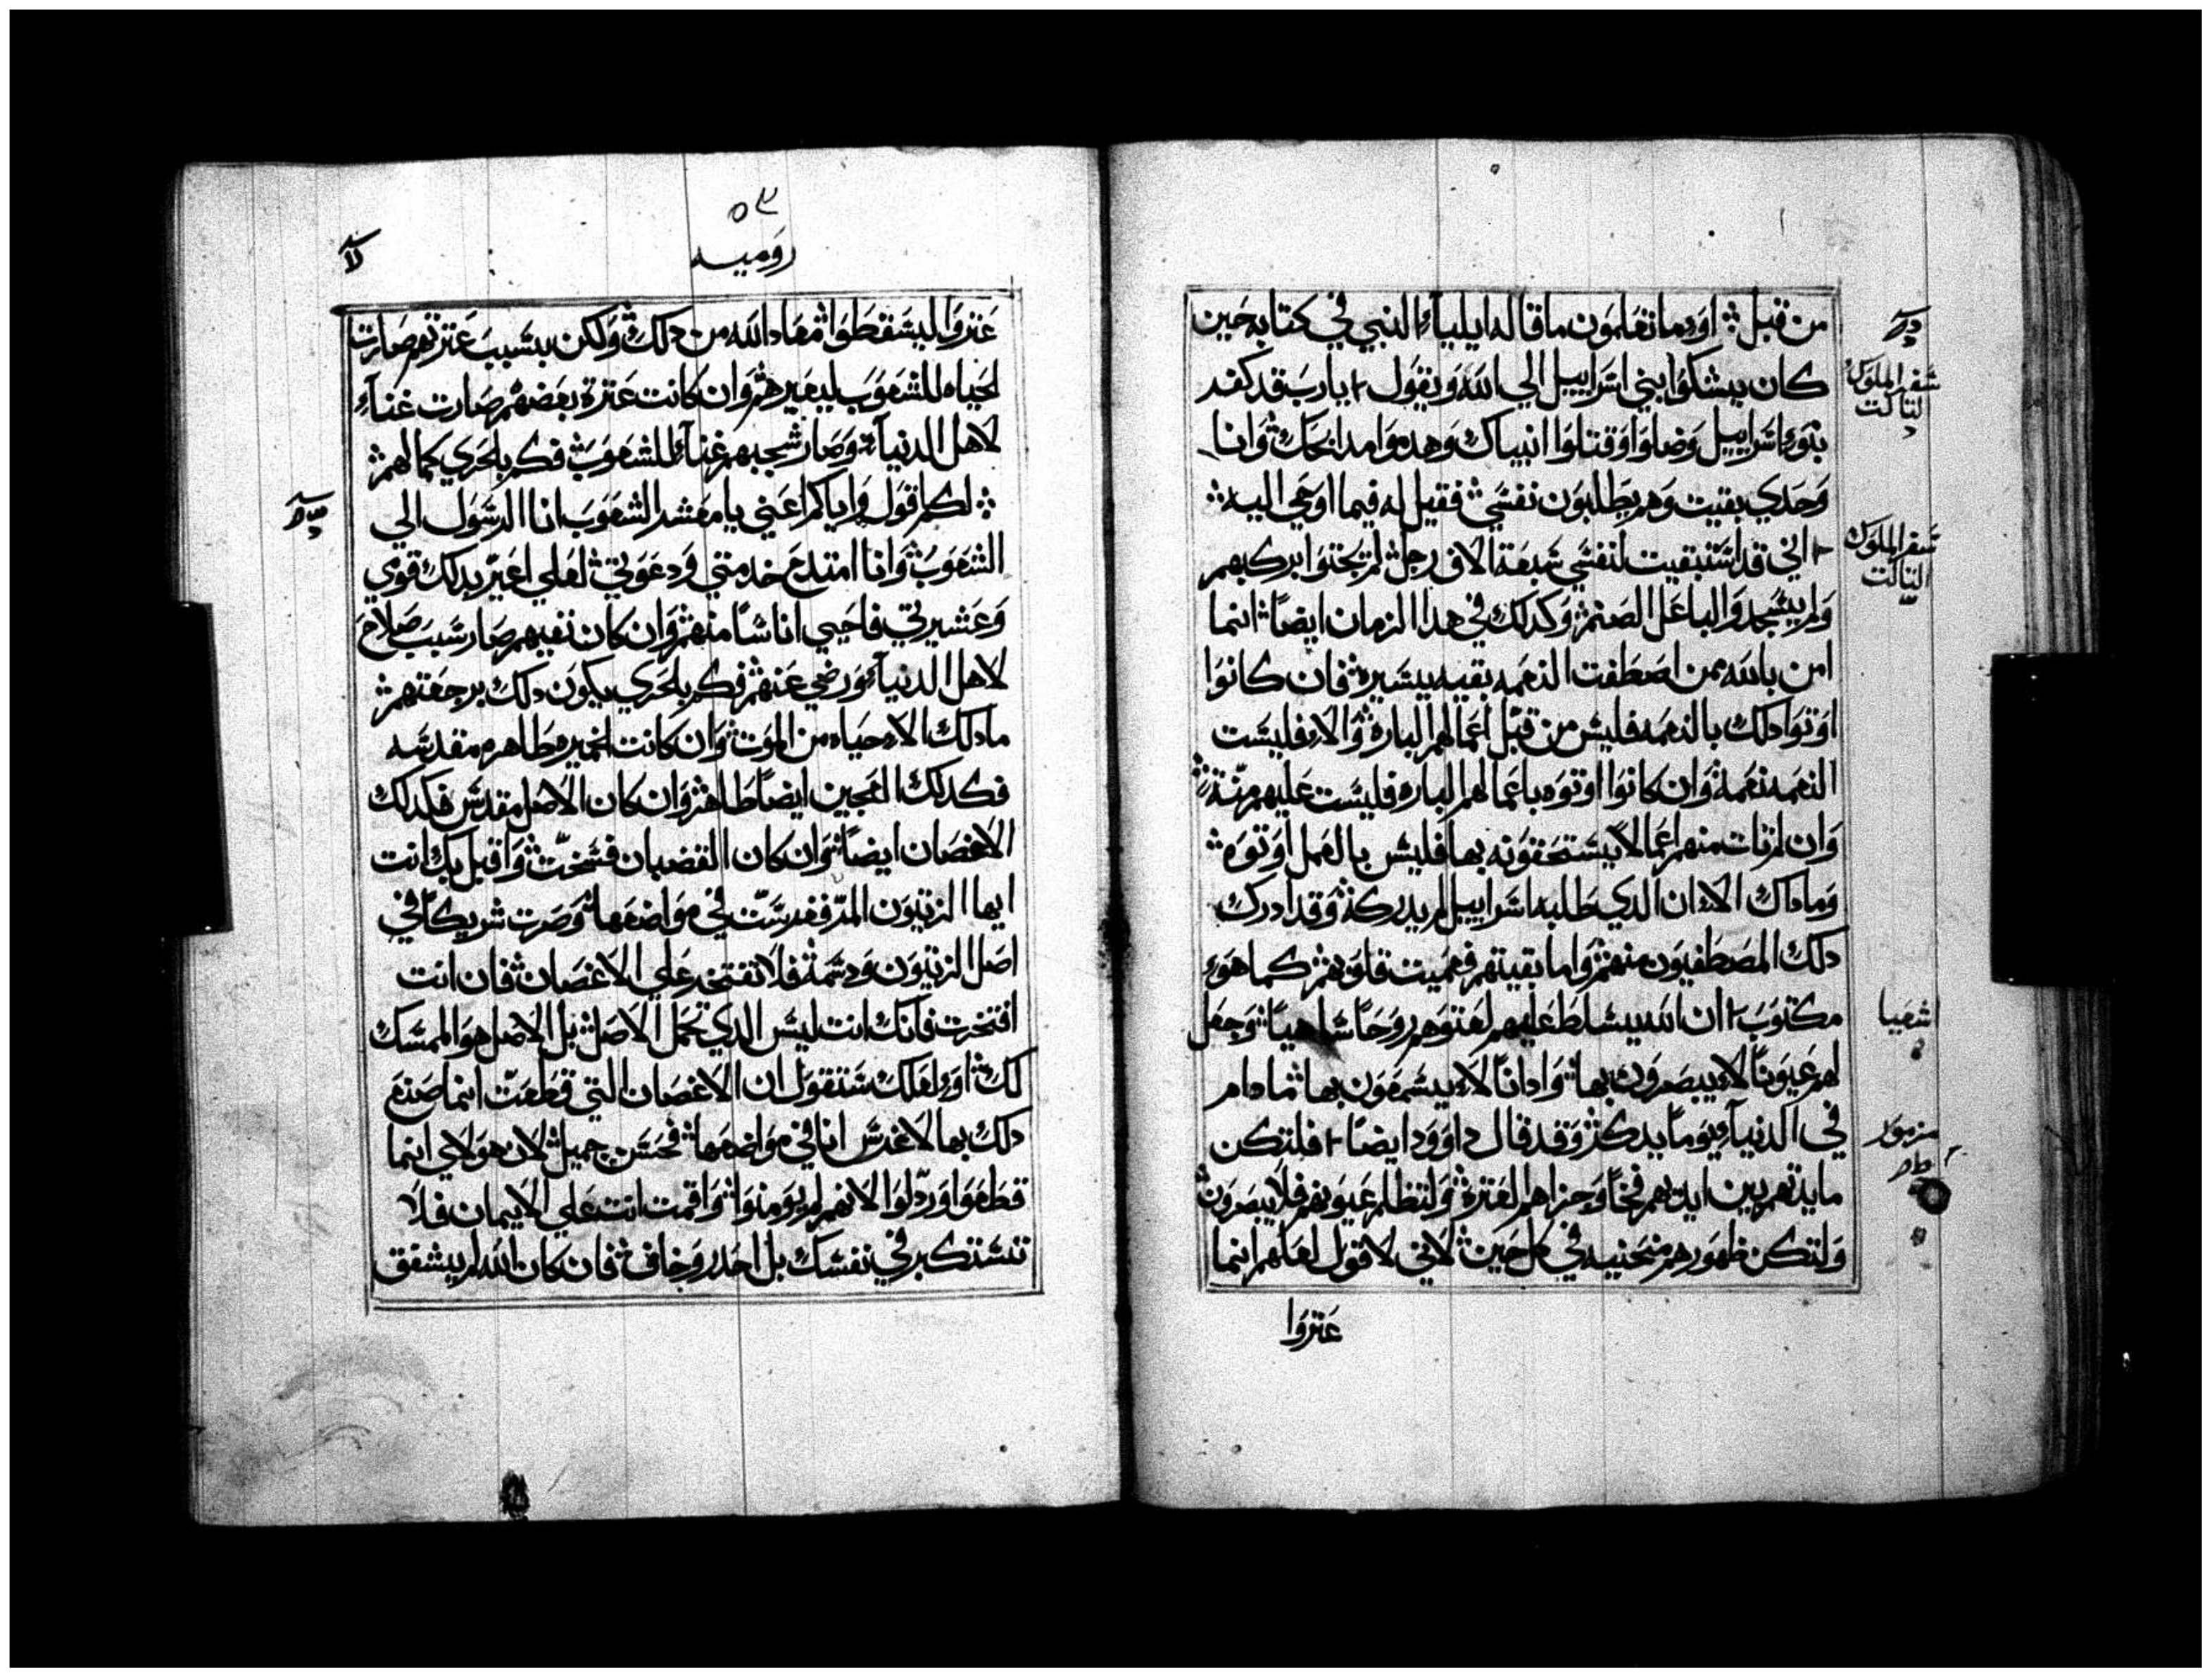 من قبل ۞ اوَما تعَلمون ما قاله ايلياء النبي في كتابه حَين
كان يشكوا بني اسَراييل الي الله ويقول يا رب قد كفد
بنوء اسَراييل وَضلوا وقتلوا انبياك وَهدموا مدابحَك وَانا
وَحَدي بقيت وَهم يطلبون نفسَي فقيل له فيما اوحَي اليه
اني قد استبقيت لنفسَي سَبعَة الاف رجل لم يجتوا بركبهم
وَلم يسَجدوا لباعَل الصَنم وَكدلك في هدا الزمان ايضاً انما
امن بالله ممن اصَطَفت النعَمه بقيه يسَيره فان كانوَا
اوَتوَا دلك بالنعَمه فليسَ من قبل اعَمالهم الباره وَالاء فليسَت
النعَمه نعَمة وَان كانوا اوتوه باعَمالهم الباره فليسَت عَليهم منّة
وَان لم تات منهم اعَمالاً يسَتحَقوَنه بها فليسَ بالعَمل اوَتوَه
وَما داك الاء ان الدي طلبه اسَراييل لم يدركه وَقد ادرك
دلك المصَطَفيوَن منهم وَاما بقيتهم فعَميت قلوَبهم كما هوَء
مكتوَب ان الله يسَلط عَليهم لعَتوَهم روَحَاً سَاهياً وَجعَل
لهم عَيوَناً لاء يبصَروَن بها وَاداناً لاء يسَمعَوَن بها ما دام
في الدنياء يوَماً يدكر وَقد قال داوَود ايضاً فلتكن
مايدتهم بين ايديهم فخاً وَجزاهم العَترة وَلتظلم عَيوَنهم فلا يبصَروَن
وَلتكن ظهوَرهم منحَنيه في كل حَين لاني لاقوَل لعَلهم انما
عَتروَا
سَفر الملوَك
التالت
سَفر الملوَك
التالت
اشعَيا
مزموَر
٥٣
روَميه
عَتروَا ليسَقطَوا معَاد الله من دلك وَلكن بسَبب عَترتهم صَارت
الحَياه للشعَوَب ليغَيرهم وَان كانت عَترة بعَضهم صَارت غناء
لاهل الدنياء وَصَار شجبهم غناء للشعَوَب فكم بالحَري كمالهم
۞ لكم اقوَل وَاياكم اعَني يا معَشر الشعَوَب انا الرسَوَل الي
الشعَوَب وَانا امتدحَ خدمتي وَدعَوَتي لعَلي اغَيّر بدلك قوَمي
وَعَشيرتي فاحَيي اناسَاً منهم وَان كان نفيهم صَار سَبب صَلاحَ
لاهل الدنياء وَرضي عَنهم فكم بالحَري يكوَن دلك برجعَتهم
ما دلك الاء حَياه من الموَت وَان كانت الخميره طَاهره مقدسَه
فكدلك العَجين ايضاً طَاهر وَان كان الاصَل مقدسَ فكدلك
الاغصَان ايضاً وَان كان القضبان فسَخت وَاقبل بك انت
ايها الزيتوَن المرّ فغرسَت في موَاضعَها وَصَرت شريكاً في
اصَل الزيتوَن وَدسَمة فلا تفتخر عَلي الاغصَان فان انت
افتخرت فانك انت ليسَ الدي تحَمل الاصَل بل الاصَل هوَ الممسَك
لك اوَء لعَلك سَتقوَل ان الاغصَان التي قطَعَت انما صَنعَ
دلك بها لاغرسَ انا في موَاضعَها فحَسَن جميل لان هوَلاي انما
قطَعَوا وَردّلوَا لانهم لم يوَمنوَا وَاقمت انت عَلي الايمان فلا
تسَتكبر في نفسَك بل احَدر وَخاف فان كان الله لم يشفق